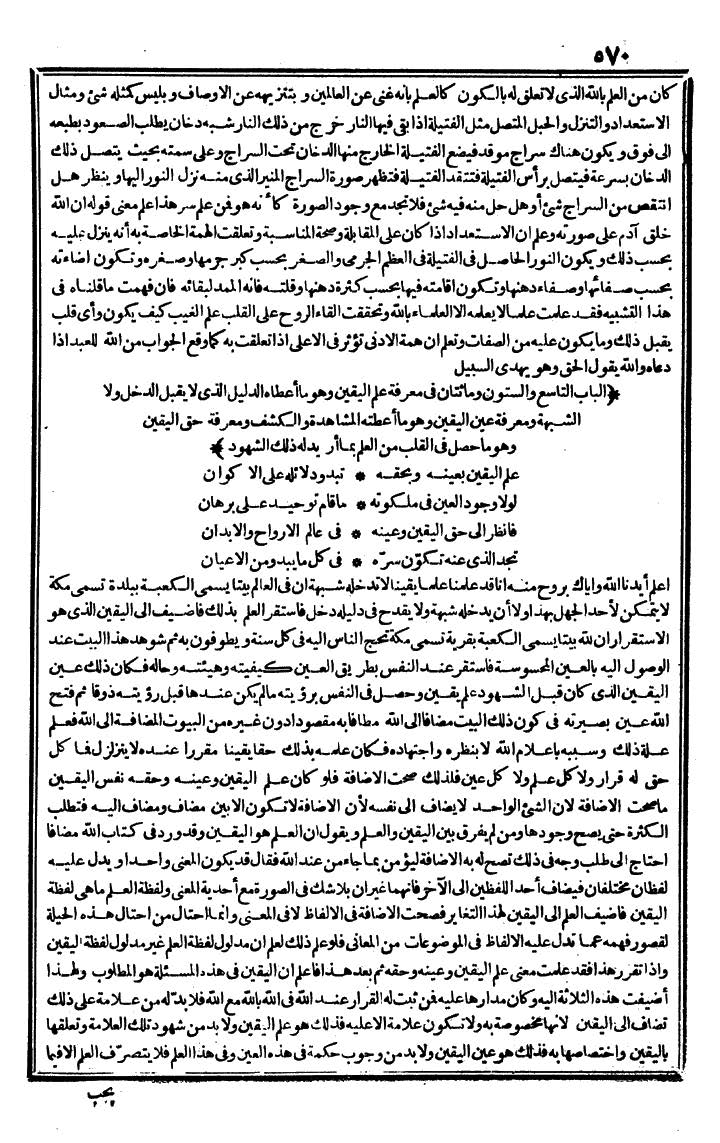 ٥٧٠
كان من العلم بالله الذى لا تعلق له بالكون كالعلم بأنه غنى عن العالمين و بتنزيهه عن الاوصاف و بليس كمثله شئ ومثال
الاستعداد والتنزل والحبل المتصل مثل الفتيلة اذا بقى فيها النار خرج من ذلك النار شبه دخان يطلب الصعود بطبعه
الى فوق و يكون هناك سراج موقد فيضع الفتيلة الخارج منها الدخان تحت السراج وعلى سمته بحيث يتصل ذلك
الدخان بسرعة فيتصل برأس الفتيلة فتتقد الفتيلة فتظهر صورة السراج المنير الذى منه نزل النور اليها و ينظر هل
انتقص من السراج شئ أو هل حل منه فيه شئ فلا تجد مع وجود الصورة كأنه هو فمن علم سر هذا علم معنى قوله ان الله
خلق آدم على صورته وعلم ان الاستعداد اذا كان على المقابلة وصحة المناسبة وتعلقت الهمة الخاصة به أنه ينزل عليه
بحسب ذلك و يكون النور الحاصل فى الفتيلة فى العظم الجرمى والصغر بحسب كبر جومها وصغره وتكون اضاءته
بحسب صفائها وصفاء دهنها وتكون اقامته فيها بحسب كثرة دهنها وقلته فانه الممد لبقائه فان فهمت ماقلناه فى
هذا التشبيه فقد علمت علما لا يعلمه الا العلماء بالله وتحققت القاء الروح على القلب علم الغيب كيف يكون وأى قلب
يقبل ذلك وما يكون عليه من الصفات وتعلم ان همة الادنى تؤثر فى الاعلى اذا تعلقت به كما وقع الجواب من الله للعبد اذا
دعاه والله يقول الحق وهو يهدى السبيل
﴿الباب التاسع والستون ومائتان فى معرفة علم اليقين وهو ما أعطاه الدليل الذى لا يقبل الدخل ولا
الشبهة ومعرفة عين اليقين وهو ما أعطته المشاهدة والكشف ومعرفة حق اليقين
وهو ما حصل فى القلب من العلم بما أريد له ذلك الشهود﴾
علم اليقين بعينه وبحقه * تبدو دلائله على الاكوان
لولا وجود العين فى ملكوته * ما قام توحيد على برهان
فانظر الى حق اليقين وعينه * فى عالم الارواح والابدان
تجد الذى عنه تكوّن سرّه * فى كل ما يبدو من الاعيان
اعلم أيدنا الله واياك بروح منه انا قد علمنا علما يقينا لا تدخله شبهة ان فى العالم بيتا يسمى الكعبة ببلدة تسمى مكة
لا يتمكن لأحد الجهل بهذا ولا أن يدخله شبهة ولا يقدح فى دليله دخل فاستقر العلم بذلك فاضيف الى اليقين الذى هو
الاستقرار ان لله بيتا يسمى الكعبة بقرية تسمى مكة تحج الناس اليه فى كل سنة و يطوفون به ثم شوهد هذا البيت عند
الوصول اليه بالعين المحسوسة فاستقر عند النفس بطريق العين كيفيته وهيئته وحاله فكان ذلك عين
اليقين الذى كان قبل الشهود علم يقين وحصل فى النفس برؤيته ما لم يكن عندها قبل رؤيته ذوقا ثم فتح
الله عين بصيرته فى كون ذلك البيت مضافا الى الله مطافا به مقصودا دون غيره من البيوت المضافة الى الله فعلم
علة ذلك وسببه باعلام الله لا بنظره واجتهاده فكان علمه بذلك حقا يقينا مقررا عنده لا يتزلزل فما كل
حق له قرار ولا كل علم ولا كل عين فلذلك صحت الاضافة فلو كان علم اليقين وعينه وحقه نفس اليقين
ماصحت الاضافة لان الشئ الواحد لا يضاف الى نفسه لأن الاضافة لا تكون الا بين مضاف ومضاف اليه فتطلب
الكثرة حتى يصح وجودها ومن لم يفرق بين اليقين والعلم و يقول ان العلم هو اليقين وقد ورد فى كتاب الله مضافا
احتاج الى طلب وجه فى ذلك تصح له به الاضافة ليؤمن بما جاء من عند الله فقال قد يكون المعنى واحدا و يدل عليه
لفظان مختلفان فيضاف أحد اللفظين الى الآخر فانهما غيران بلا شك فى الصورة مع أحدية المعنى ولفظة العلم ماهى لفظة
اليقين فاضيف العلم الى اليقين لهذا التغاير فصحت الاضافة فى الالفاظ لا فى المعنى وانما احتال من احتال هذه الحيلة
لقصور فهمه عما تدل عليه الالفاظ فى الموضوعات من المعانى فلو علم ذلك لعلم ان مدلول لفظة العلم غير مدلول لفظة اليقين
واذا تقرر هذا فقد علمت معنى علم اليقين وعينه وحقه ثم بعد هذا فاعلم ان اليقين فى هذه المسئلة هو المطلوب ولهذا
أضيفت هذه الثلاثة اليه وكان مدارها عليه فمن ثبت له القرار عند الله فى الله بالله مع الله فلا بدّ له من علامة على ذلك
تضاف الى اليقين لانها مخصوصة به ولا تكون علامة الا عليه فذلك هو علم اليقين ولا بد من شهود تلك العلامة وتعلقها
باليقين واختصاصها به فذلك هو عين اليقين ولا بد من وجوب حكمة فى هذه العين وفى هذا العلم فلا يتصرّف العلم الا فيما
يجب